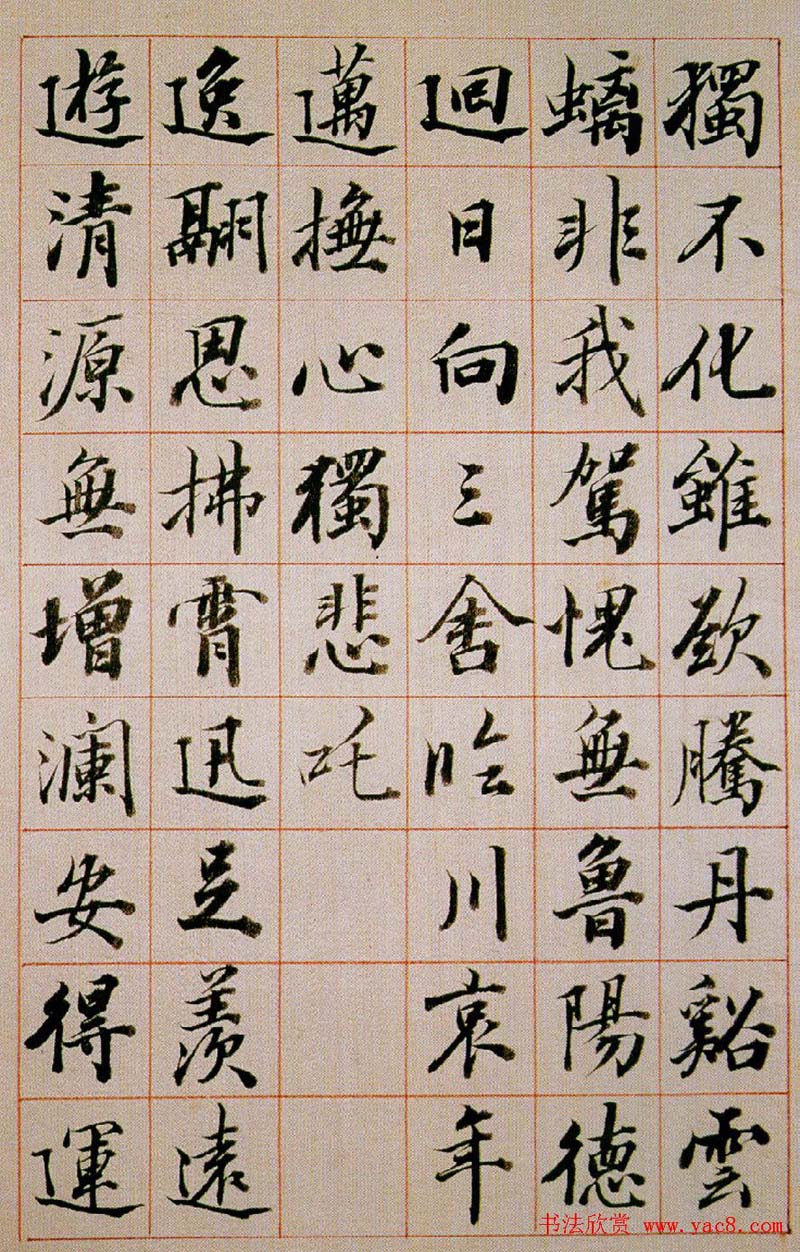 獨不化雖欲騰丹谿雲
螭非我駕愧無魯陽德
迴日向三舍臨川哀年
邁撫心獨悲吒
逸翮思拂霄迅足羨遠
遊清源無增瀾安得運
书法欣赏 www.yac8.com